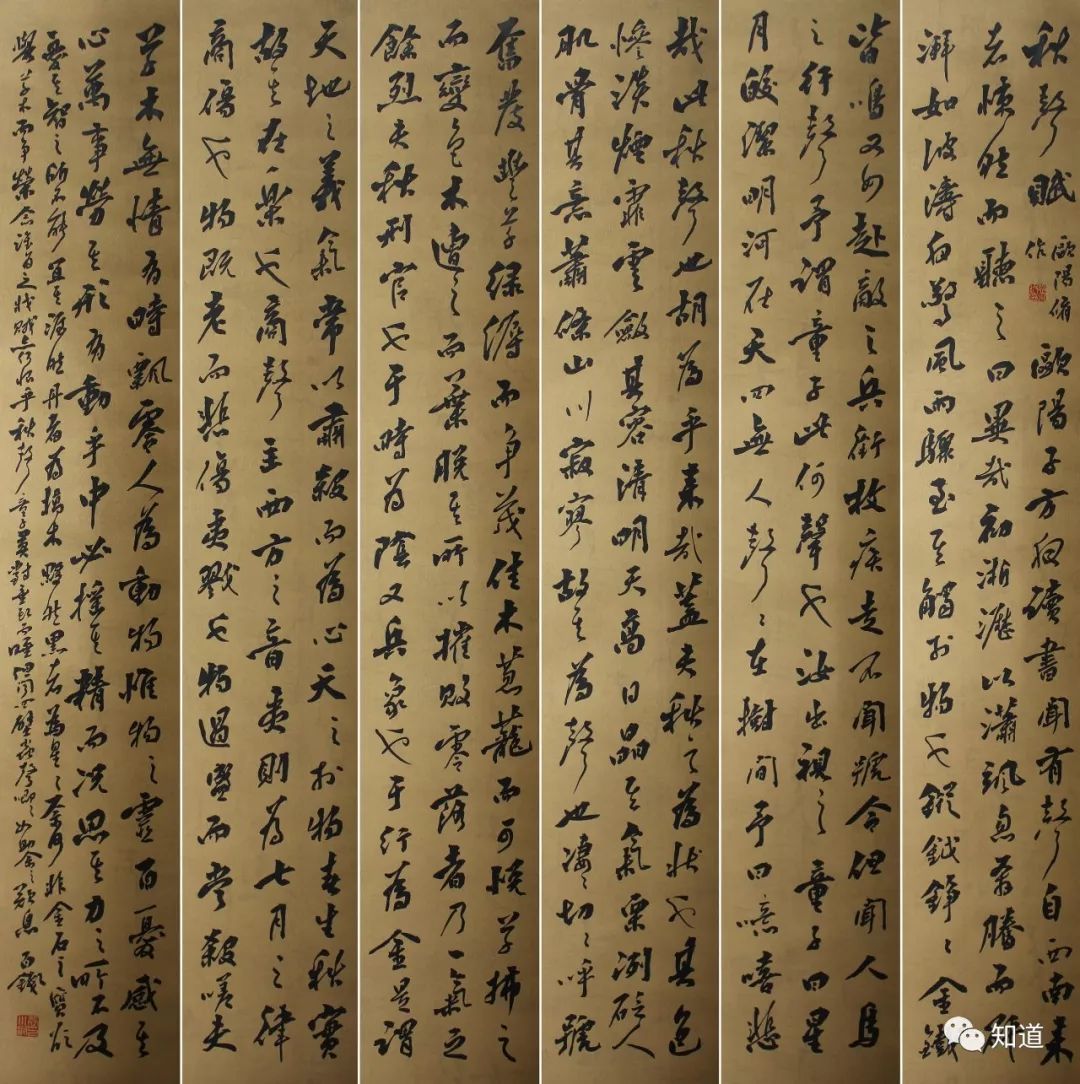 秋聲賦 歐陽脩作 歐陽子方夜讀書聞有聲自西南來
者悚然而聽之曰異哉初淅瀝以瀟颯忽奔騰而砰
湃如波濤夜驚風雨驟至其觸於物也鏦錚〻金鐵
皆鳴又如赴敵之兵銜枚疾走不聞號令但聞人馬
之行聲予謂童子此何聲也汝出視之童子曰星
月皎潔明河在天四無人聲〻在樹間予曰噫嘻悲
哉此秋聲也胡為乎來哉蓋夫秋之為狀也其色
慘淡煙霏雲斂其容清明天高日晶其氣栗冽砭人
肌骨其意蕭條山川寂寥故其為聲也淒〻切〻呼號
奮發豐草綠縟而爭茂佳木蔥蘢而可悅草拂之
而變色木遭之而葉脫其所以摧敗零落者乃一氣之
餘烈夫秋刑官也于時為陰又兵象也于行為金是謂
天地之義氣常以肅殺而為心天之於物春生秋實
故其在樂也商聲主西方之音夷則為七月之律
商傷也物既老而悲傷夷戮也物過盛而當殺嗟夫
草木無情有時飄零人為動物惟物之靈百憂感其
心萬事勞其形有動乎中必搖其精而況思其力之所不及
憂其智之所不能宜其渥然丹者為槁木黟然黑者為星〻奈何非金石之質欲
與草木而爭榮念誰為之戕賊亦何恨乎秋聲童子莫對垂頭而睡但聞四壁蟲聲唧〻如助余之歎息
知道